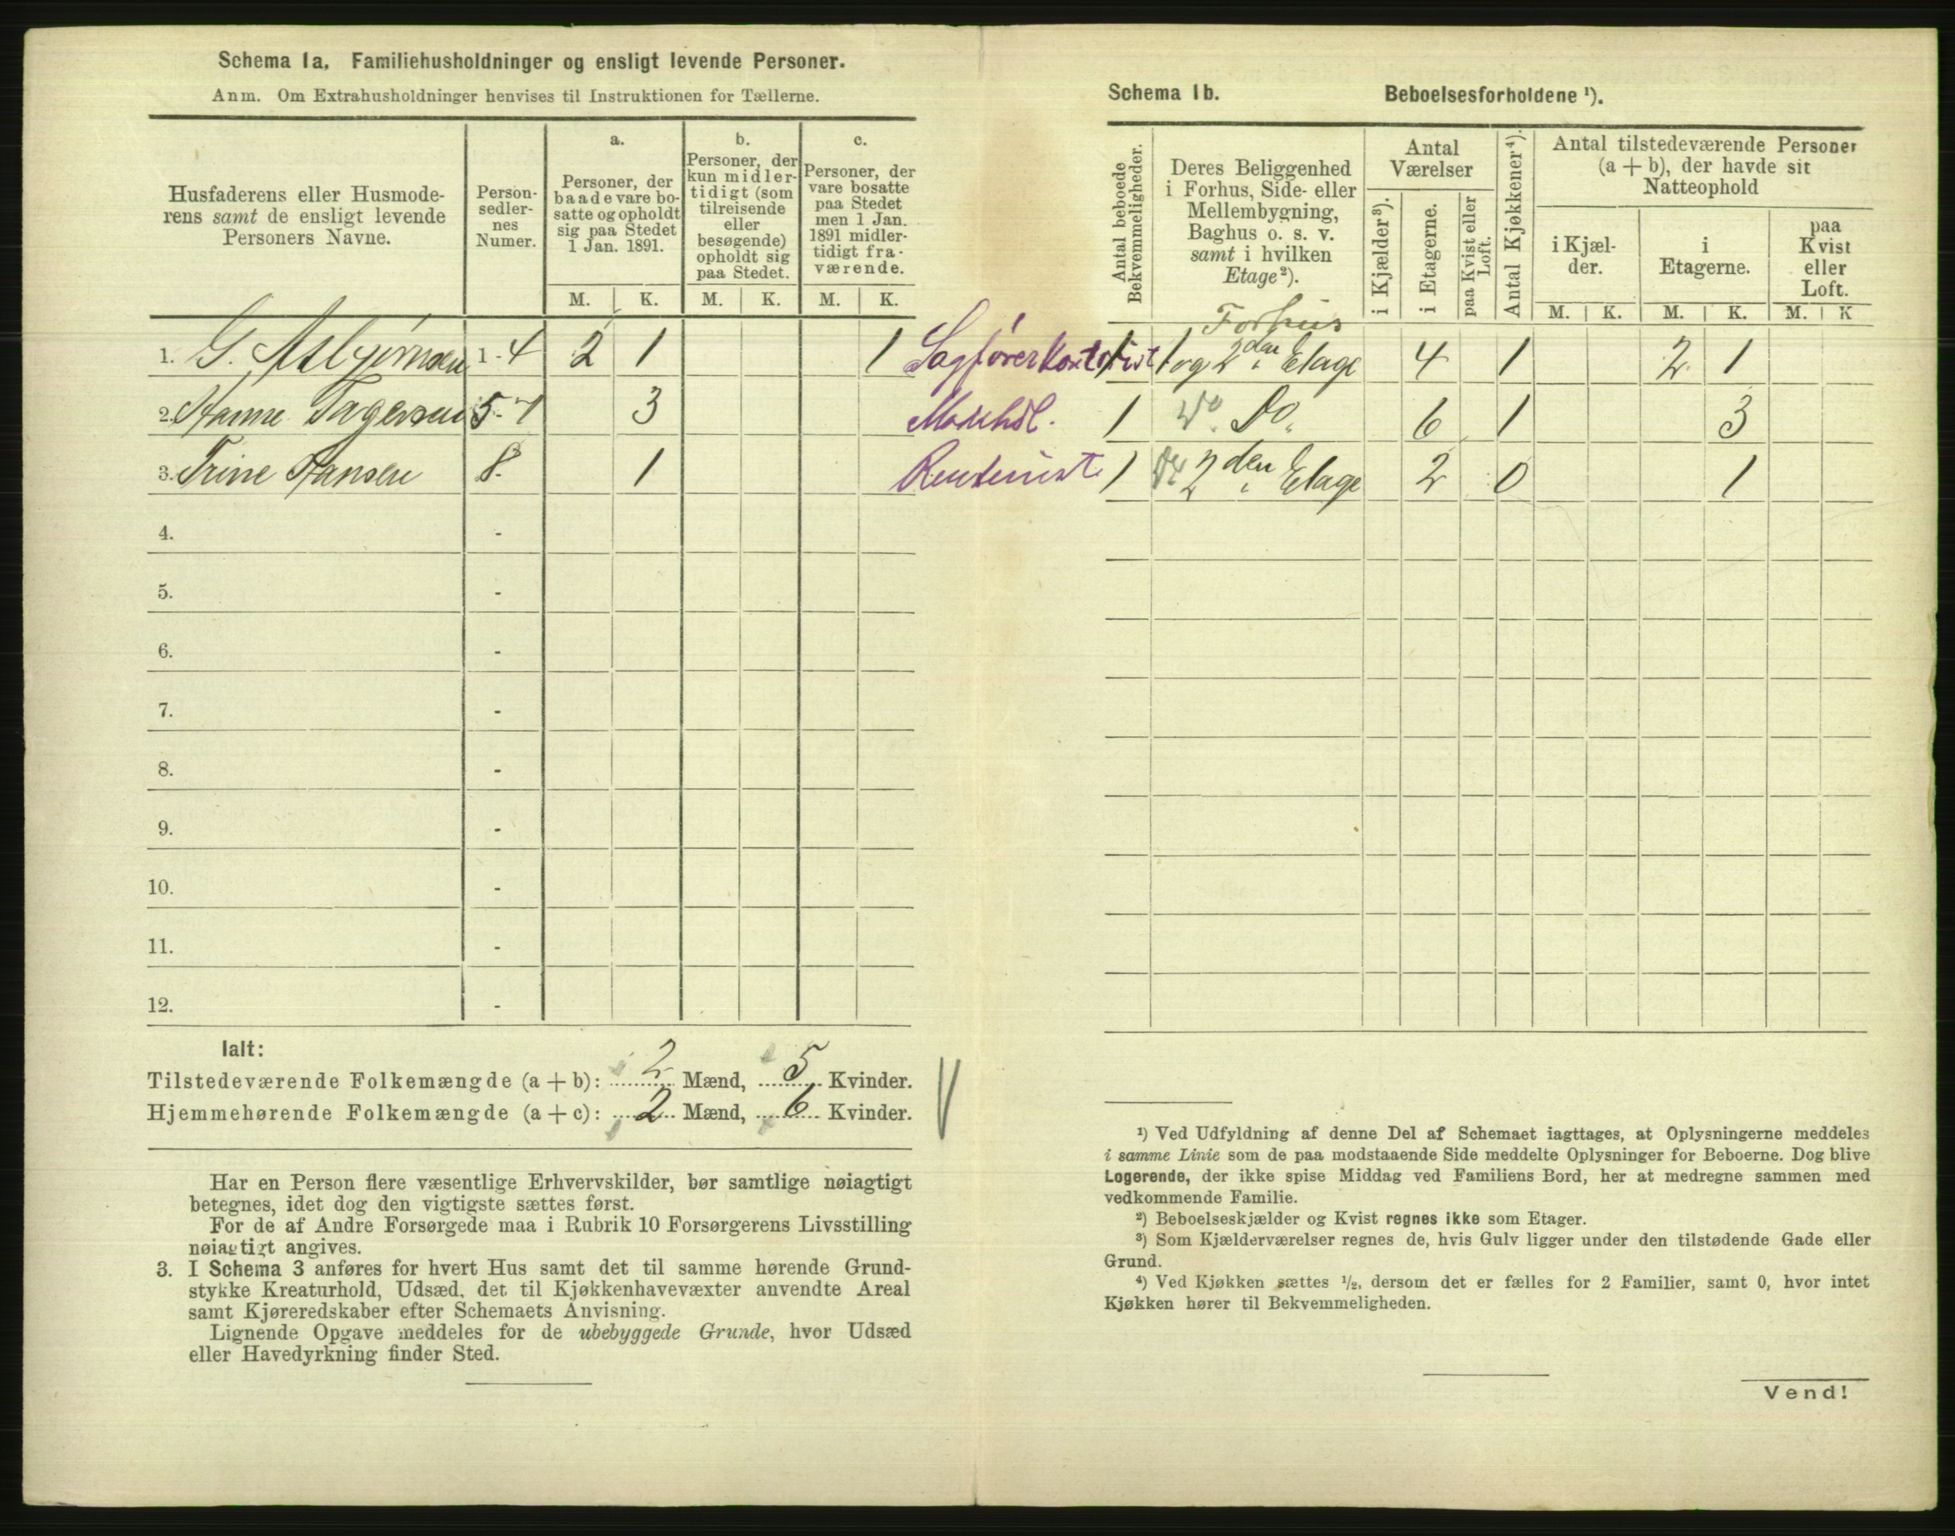 Schema 1a. Familiehusholdninger og ensligt levende Personer.
Anm. Om Extrahusholdninger henvises til Instruktionen for Tællerne.
Husfaderens eller Husmode-
rens samt de ensligt levende
Personers Navne.
Person-
sedler-
nes
Numer.
a.
Personer, der
baade vare bo-
satte og opholdt
sig paa Stedet
1 Jan. 1891.
b.
Personer, der
kun midler-
tidigt (som
tilreisende
eller
besøgende)
opholdt sig
paa Stedet.
c.
Personer, der
vare bosatte
paa Stedet
men 1 Jan.
1891 midler-
tidigt fra-
værende.
M. K. M. K. M. K.
1. G. Asbjørnsen 1 - 4 2 1 1
2. Hanne 5 - 7 3
3. Trine Hansen 8 - 1
4. -
5. -
6. -
7. -
8. -
9. -
10. -
11. -
12. -
Ialt:
Tilstedeværende Folkemængde (a + b): 2 Mænd, 5 Kvinder.
Hjemmehørende Folkemængde (a + c): 2 Mænd, 6 Kvinder.
Har en Person flere væsentlige Erhvervskilder, bør samtlige nøiagtigt
betegnes, idet dog den vigtigste sættes først.
For de af Andre Forsørgede maa i Rubrik 10 Forsørgerens Livsstilling
nøiagtigt angives.
3. I Schema 3 anføres for hvert Hus samt det til samme hørende Grund-
stykke Kreaturhold, Udsæd, det til Kjøkkenhavevæxter anvendte Areal
samt Kjøreredskaber efter Schemaets Anvisning.
Lignende Opgave meddeles for de ubebyggede Grunde, hvor Udsæd
eller Havedyrkning finder Sted.
Schema 1b. Beboelsesforholdene ¹).
Antal beboede
Bekvemmeligheder.
Deres Beliggenhed
i Forhus, Side- eller
Mellembygning,
Baghus o. s. v.
samt i hvilken
Etage²).
Antal
Værelser
i Kjælder³).
i Etagerne.
paa Kvist eller
Loft.
Antal Kjøkkener⁴).
Antal tilstedeværende Personer
(a + b), der havde sit
Natteophold
i Kjæl-
der.
i
Etagerne.
paa
Kvist
eller
Loft.
M. K. M. K. M. K
Forhus
Sagførerkontorist 1 1 og 2den Etage 4 1 2 1
1 Do Do. 6 1 3
Rentenist 1 2den Etage 2 0 1
¹) Ved Udfyldning af denne Del af Schemaet iagttages, at Oplysningerne meddeles
i samme Linie som de paa modstaaende Side meddelte Oplysninger for Beboerne. Dog blive
Logerende, der ikke spise Middag ved Familiens Bord, her at medregne sammen med
vedkommende Familie.
²) Beboelseskjælder og Kvist regnes ikke som Etager.
³) Som Kjælderværelser regnes de, hvis Gulv ligger under den tilstødende Gade eller
Grund.
⁴) Ved Kjøkken sættes ½, dersom det er fælles for 2 Familier, samt 0, hvor intet
Kjøkken hører til Bekvemmeligheden.
Vend!